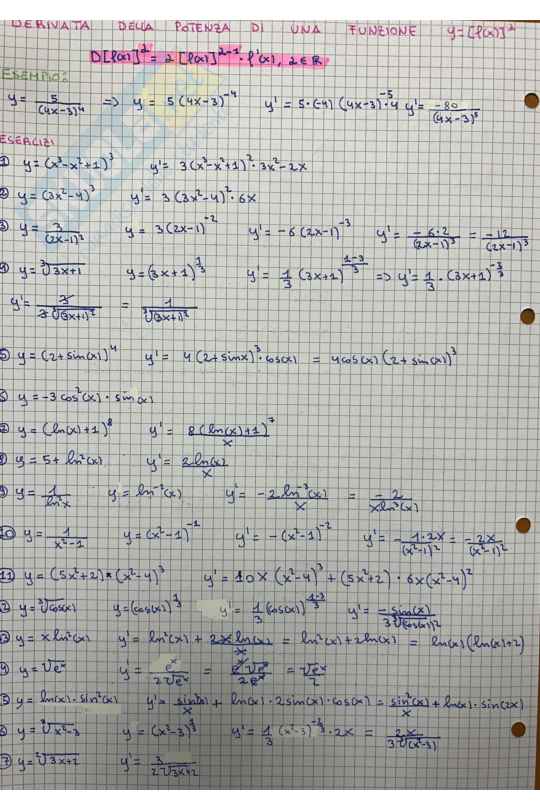 DERIVATA DELLA POTENZA DI UNA FUNZIONE y=[f(x)]²
D[f(x)]² = 2 [f(x)]²⁻¹ · f'(x), 2∈R
ESEMPIO:
y = 5/(4x-3)⁴ => y = 5(4x-3)⁻⁴ y' = 5·(-4)(4x-3)⁻⁵·4 y' = -80/(4x-3)⁵
ESERCIZI
① y = (x³-x²+1)³ y' = 3(x³-x²+1)²·3x²-2x
② y = (3x²-4)³ y' = 3(3x²-4)²·6x
③ y = 3/(2x-1)² y = 3(2x-1)⁻² y' = -6(2x-1)⁻³ y' = -6·2/(2x-1)³ = -12/(2x-1)³
④ y = ∛3x+1 y = (3x+1)^1/3 y' = 1/3 (3x+1)^(1-3)/3 => y' = 1/3 · (3x+1)^-2/3
y' = 3/3∛(3x+1)² = 1/∛(3x+1)²
⑤ y = (2+sin(x))⁴ y' = 4(2+sinx)³·cos(x) = 4cos(x)(2+sin(x))³
y = -3cos²(x)·sin(x)
y = (ln(x)+1)⁸ y' = 8(ln(x)+1)⁷/x
y = 5+ln²(x) y' = 2ln(x)/x
y = 1/ln²x y = ln⁻²(x) y' = -2ln⁻³(x)/x = -2/xln³(x)
10 y = 1/x²-1 y = (x²-1)⁻¹ y' = -(x²-1)⁻² y' = -1·2x/(x²-1)² = -2x/(x²-1)²
11 y = (5x²+2)*(x²-4)³ y' = 10x(x²-4)³+(5x²+2)·6x(x²-4)²
2 y = ∛cos(x) y = (cos(x))^1/3 y' = 1/3 (cos(x))^(1-3)/3 y' = -sin(x)/3∛(cos(x))²
3 y = xln²(x) y' = ln²(x)+2xln(x)/x = ln²(x)+2ln(x) = ln(x)(ln(x)+2)
4 y = √eˣ y' = eˣ/2√eˣ = eˣ√eˣ/2eˣ = √eˣ/2
5 y = ln(x)·sin²(x) y' = sin²(x)/x + ln(x)·2sin(x)·cos(x) = sin²(x)/x + ln(x)·sin(2x)
6 y = ∛x²-3 y = (x²-3)^1/3 y' = 1/3 (x²-3)^-2/3·2x = 2x/3∛(x²-3)
7 y = √3x+2 y' = 3/2√3x+2